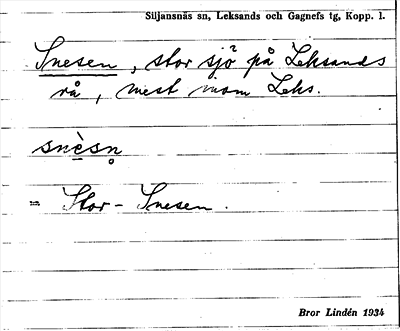 Siljansnäs sn, Leksands och Gagnefs tg, Kopp. l.
Snesen, stor sjö på Leksands
rå, mest inom Leks.
snè̱sn̥
= Stor-Snesen.
Bror Lindén 1934